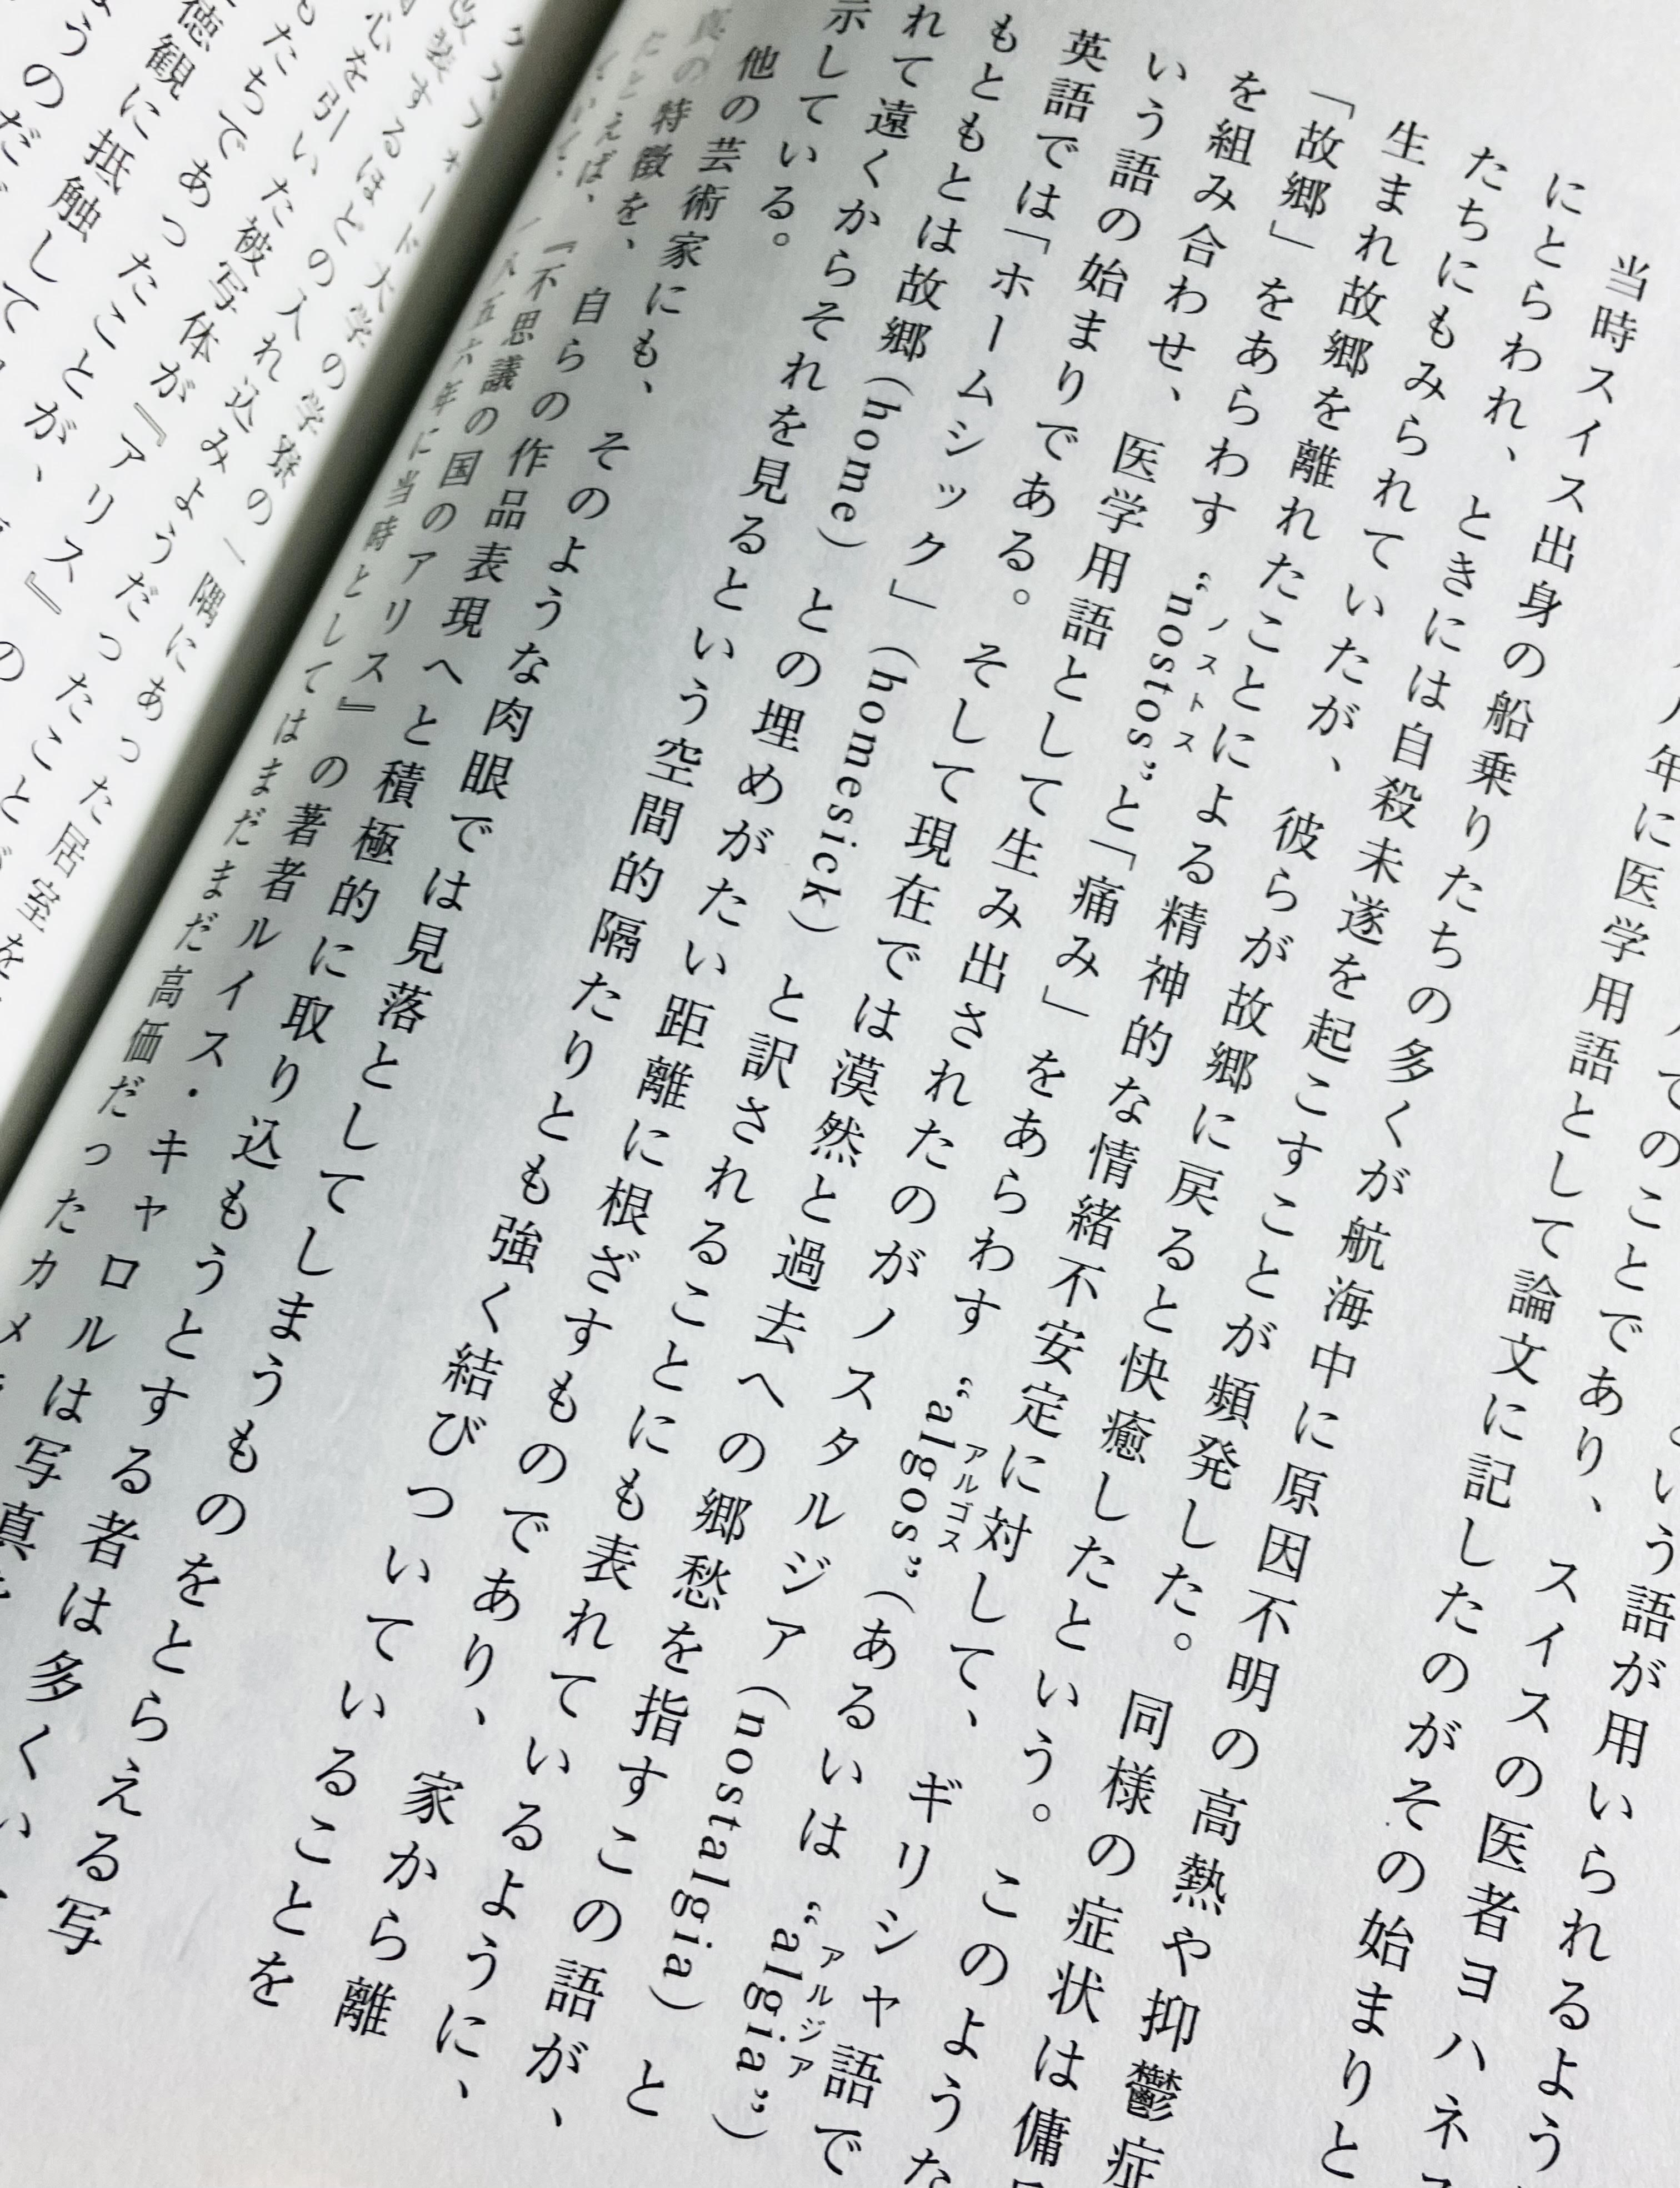 いう語が用いられるよう
てのことであり、スイスの医者ヨハネ
年に医学用語として論文に記したのがその始まりと
当時スイス出身の船乗りたちの多くが航海中に原因不明の高熱や抑鬱症
にとらわれ、ときには自殺未遂を起こすことが頻発した。同様の症状は傭
たちにもみられていたが、彼らが故郷に戻ると快癒したという。このような
生まれ故郷を離れたことによる精神的な情緒不安定に対して、ギリシャ語で
「故郷」をあらわす“nostos”ノストスと「痛み」をあらわす“algos”アルゴス（あるいは“algia”アルジア）
を組み合わせ、医学用語として生み出されたのがノスタルジア（nostalgia）と
いう語の始まりである。そして現在では漠然と過去への郷愁を指すこの語が、
英語では「ホームシック」（homesick）と訳されることにも表れているように、
もともとは故郷（home）との埋めがたい距離に根ざすものであり、家から離
れて遠くからそれを見るという空間的隔たりとも強く結びついていることを
示している。
他の芸術家にも、そのような肉眼では見落としてしまうものをとらえる写
真の特徴を、自らの作品表現へと積極的に取り込もうとする者は多くい
たとえば、『不思議の国のアリス』の著者ルイス・キャロルは写真
一八五六年に当時としてはまだまだ高価だったカメ
クスフォード大学の学寮の一隅にあった居室を
改装するほどの入れ込みようだったことが
心を引いた被写体が『アリス』の
たちであったことが、
徳観に抵触して
うのだ